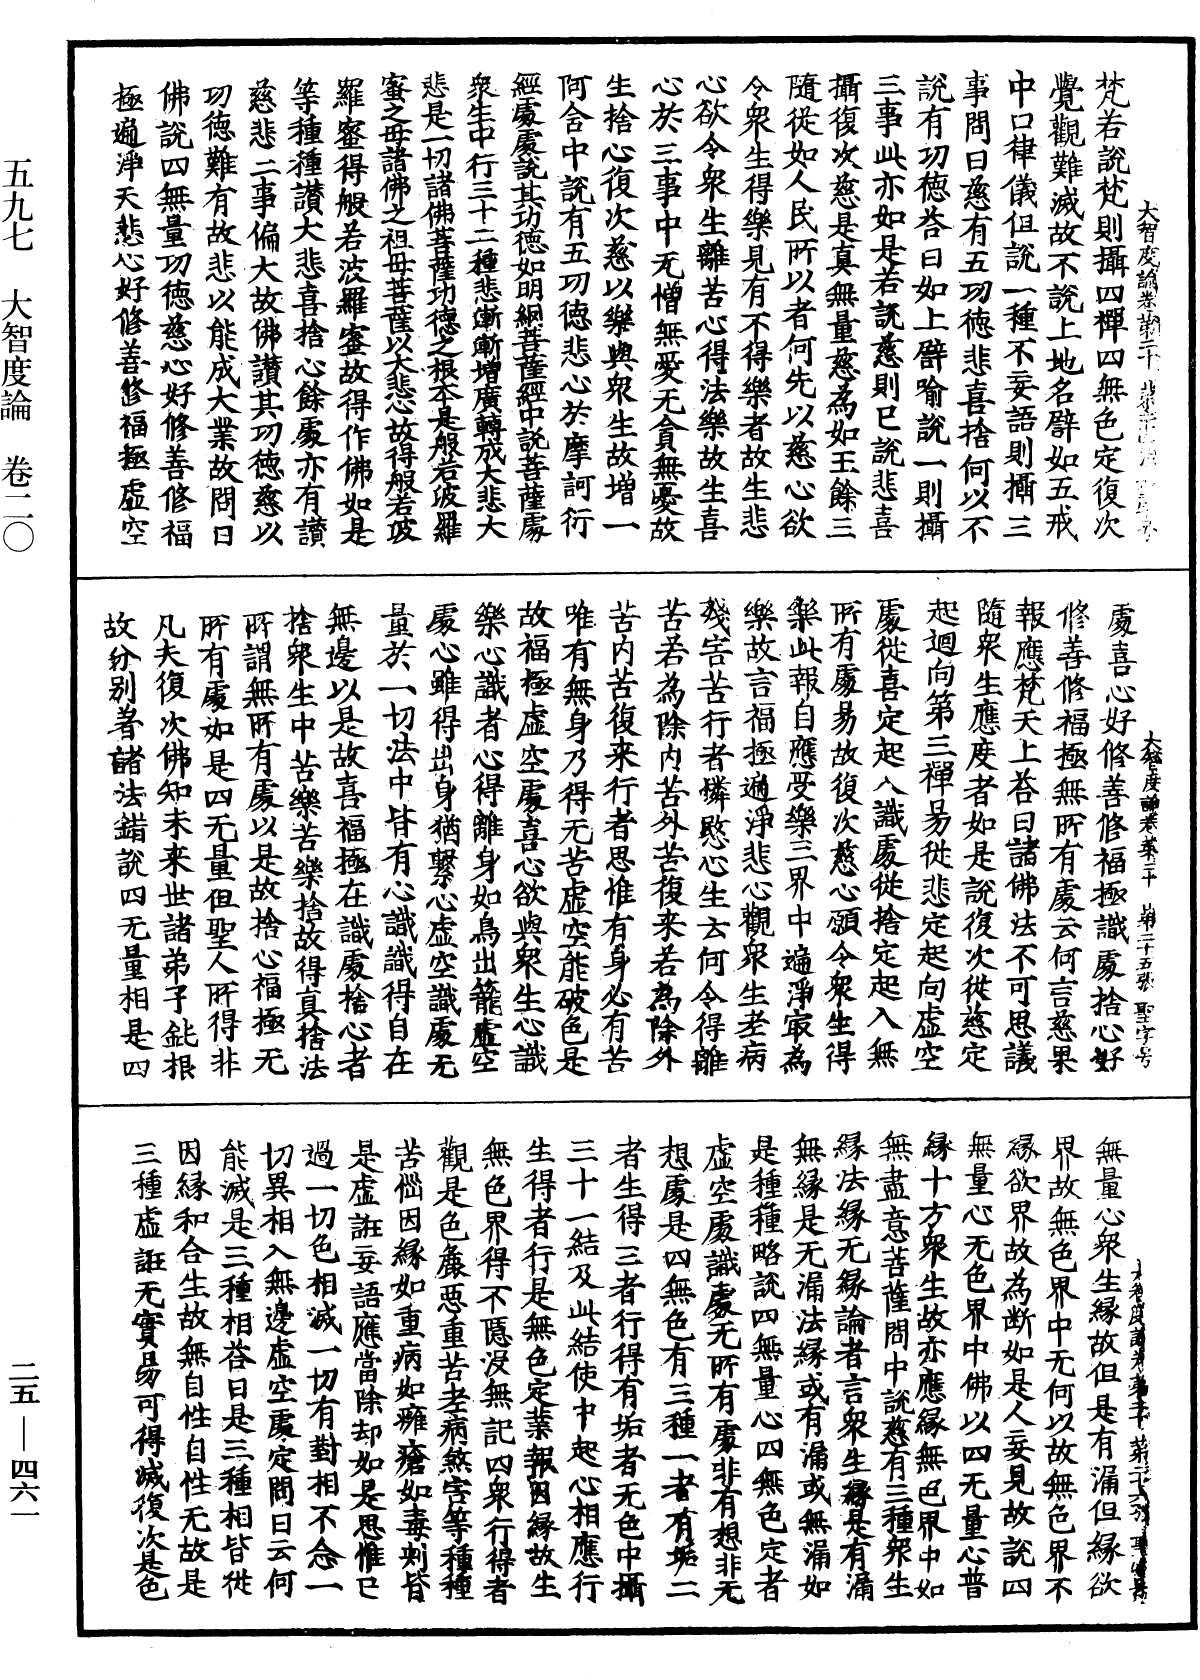 梵若說梵則攝四禪四無色定復次
覺觀難滅故不說上地名譬如五戒
中口律儀但說一種不妄語則攝三
事問曰慈有五功德悲喜捨何以不
說有功德荅曰如上譬喻說一則攝
三事此亦如是若說慈則已說悲喜
攝復次慈是真無量慈為如王餘三
隨從如人民所以者何先以慈心欲
令衆生得樂見有不得樂者故生悲
心欲令衆生離苦心得法樂故生喜
心於三事中无憎無愛无貪無憂故
生捨心復次慈以樂與衆生故增一
阿含中說有五功德悲心於摩訶衍
經處處說其功德如明網菩薩經中說菩薩處
衆生中行三十二種悲漸漸增廣轉成大悲大
悲是一切諸佛菩薩功德之根本是般若波羅
蜜之母諸佛之祖母菩薩以大悲心故得般若波
羅蜜得般若波羅蜜故得作佛如是
等種種讃大悲喜捨心餘處亦有讃
慈悲二事偏大故佛讃其功德慈以
功德難有故悲以能成大業故問曰
佛說四無量功德慈心好修善修福
極遍淨天悲心好修善修福極虛空
處喜心好修善修福極識處捨心好
修善修福極無所有處云何言慈果
報應梵天上荅曰諸佛法不可思議
隨衆生應度者如是說復次從慈定
起迴向第三禪易從悲定起向虛空
處從喜定起入識處從捨定起入無
所有處易故復次慈心願令衆生得
樂此報自應受樂三界中遍淨㝡為
樂故言福極遍淨悲心觀衆生老病
殘害苦行者憐愍心生云何令得離
苦若為除内苦外苦復来若為除外
苦内苦復来行者思惟有身必有苦
唯有無身乃得无苦虛空能破色是
故福極虛空處喜心欲與衆生心識
樂心識者心得離身如鳥出籠虛空
處心雖得出身猶繫心虛空識處无
量於一切法中皆有心識識得自在
無邊以是故喜福極在識處捨心者
捨衆生中苦樂苦樂捨故得真捨法
所謂無所有處以是故捨心福極无
所有處如是四无量但聖人所得非
凡夫復次佛知未来世諸弟子鈍根
故分别著諸法錯說四无量相是四
無量心衆生緣故但是有漏但緣欲
界故無色界中无何以故無色界不
緣欲界故為断如是人妄見故說四
無量心无色界中佛以四无量心普
緣十方衆生故亦應緣無色界中如
無盡意菩薩問中說慈有三種衆生
緣法緣无緣論者言衆生緣是有漏
無緣是无漏法緣或有漏或無漏如
是種種略說四無量心四無色定者
虛空處識處无所有處非有想非无
想處是四無色有三種一者有垢二
者生得三者行得有垢者无色中攝
三十一結及此結使中起心相應行
生得者行是無色定業報因緣故生
無色界得不隱没無記四衆行得者
觀是色麁惡重苦老病煞害等種種
苦惱因緣如重病如癰瘡如毒刾皆
是虛誑妄語應當除却如是思惟已
過一切色相滅一切有對相不念一
切異相入無邊虛空處定問曰云何
能滅是三種相荅曰是三種相皆從
因緣和合生故無自性自性无故是
三種虛誑无實易可得滅復次是色
大智度論卷第二十
大智度論卷第二十 第二十五張 聖字号
大智度論卷第二十 第二十六張 聖字号
五九七 大智度論 卷二〇
二五—四六一